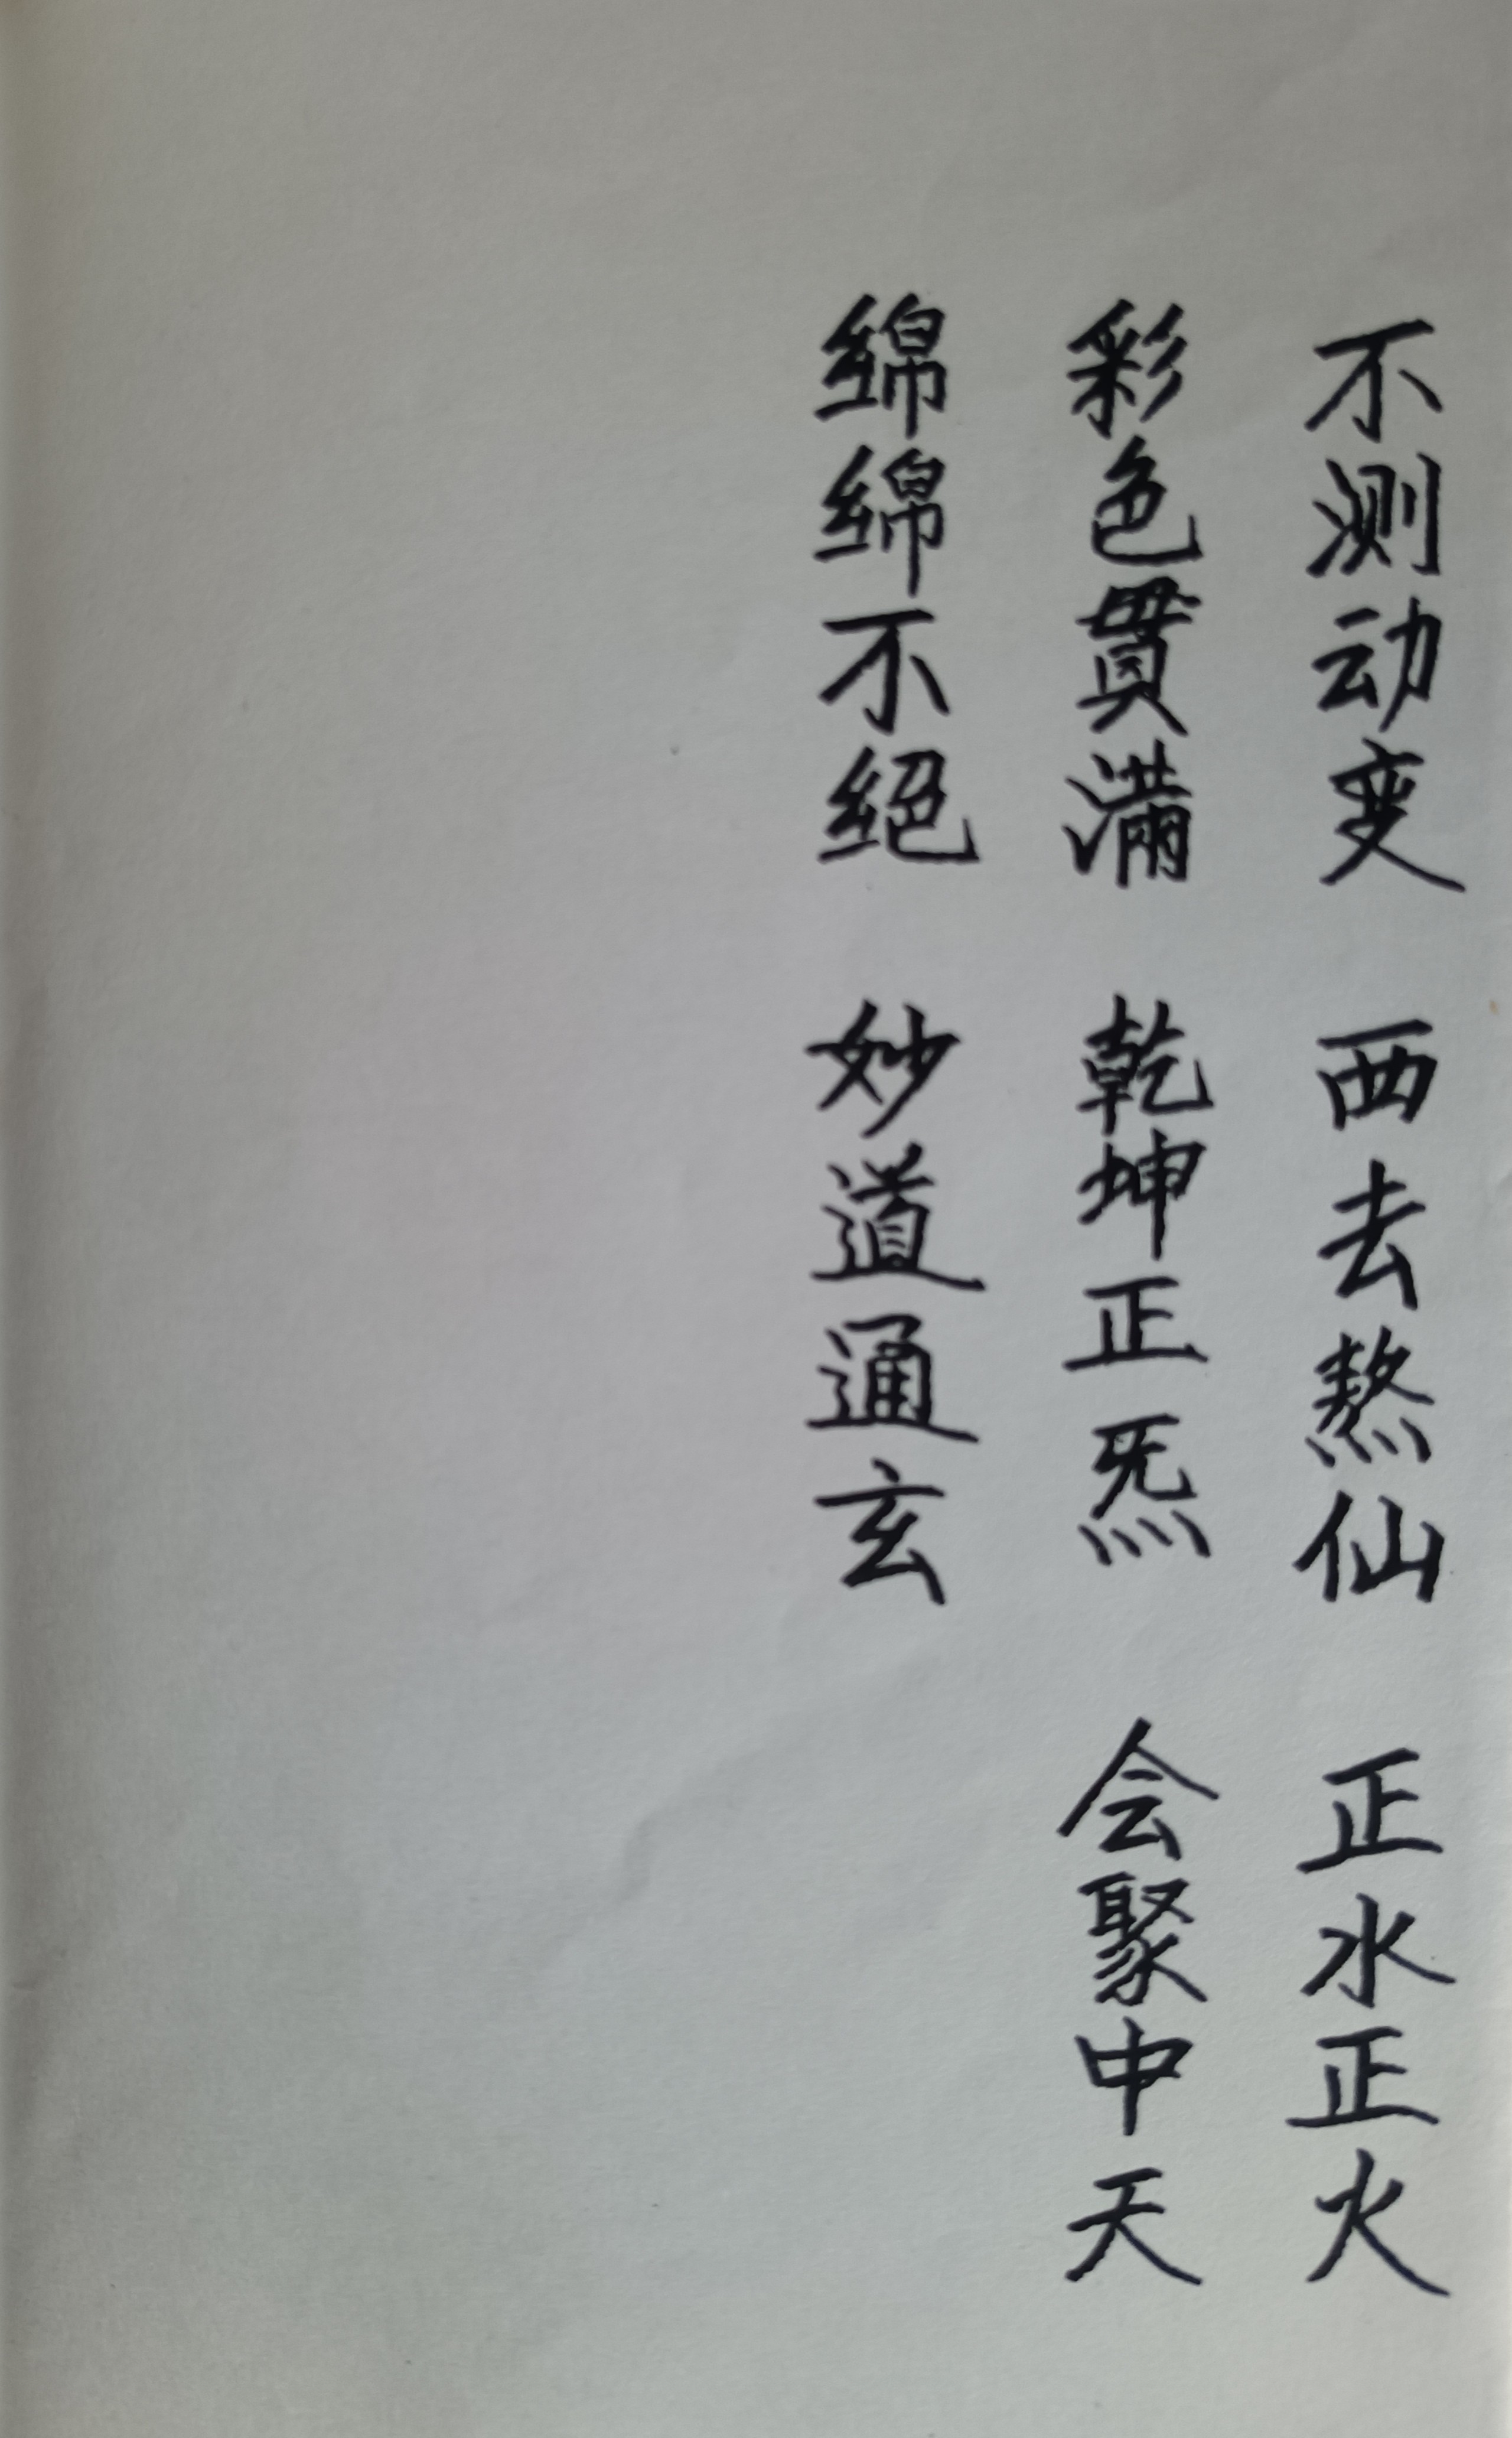 不测动变 西去熬仙 正水正火
彩色贯满 乾坤正炁 会聚中天
绵绵不绝 妙道通玄